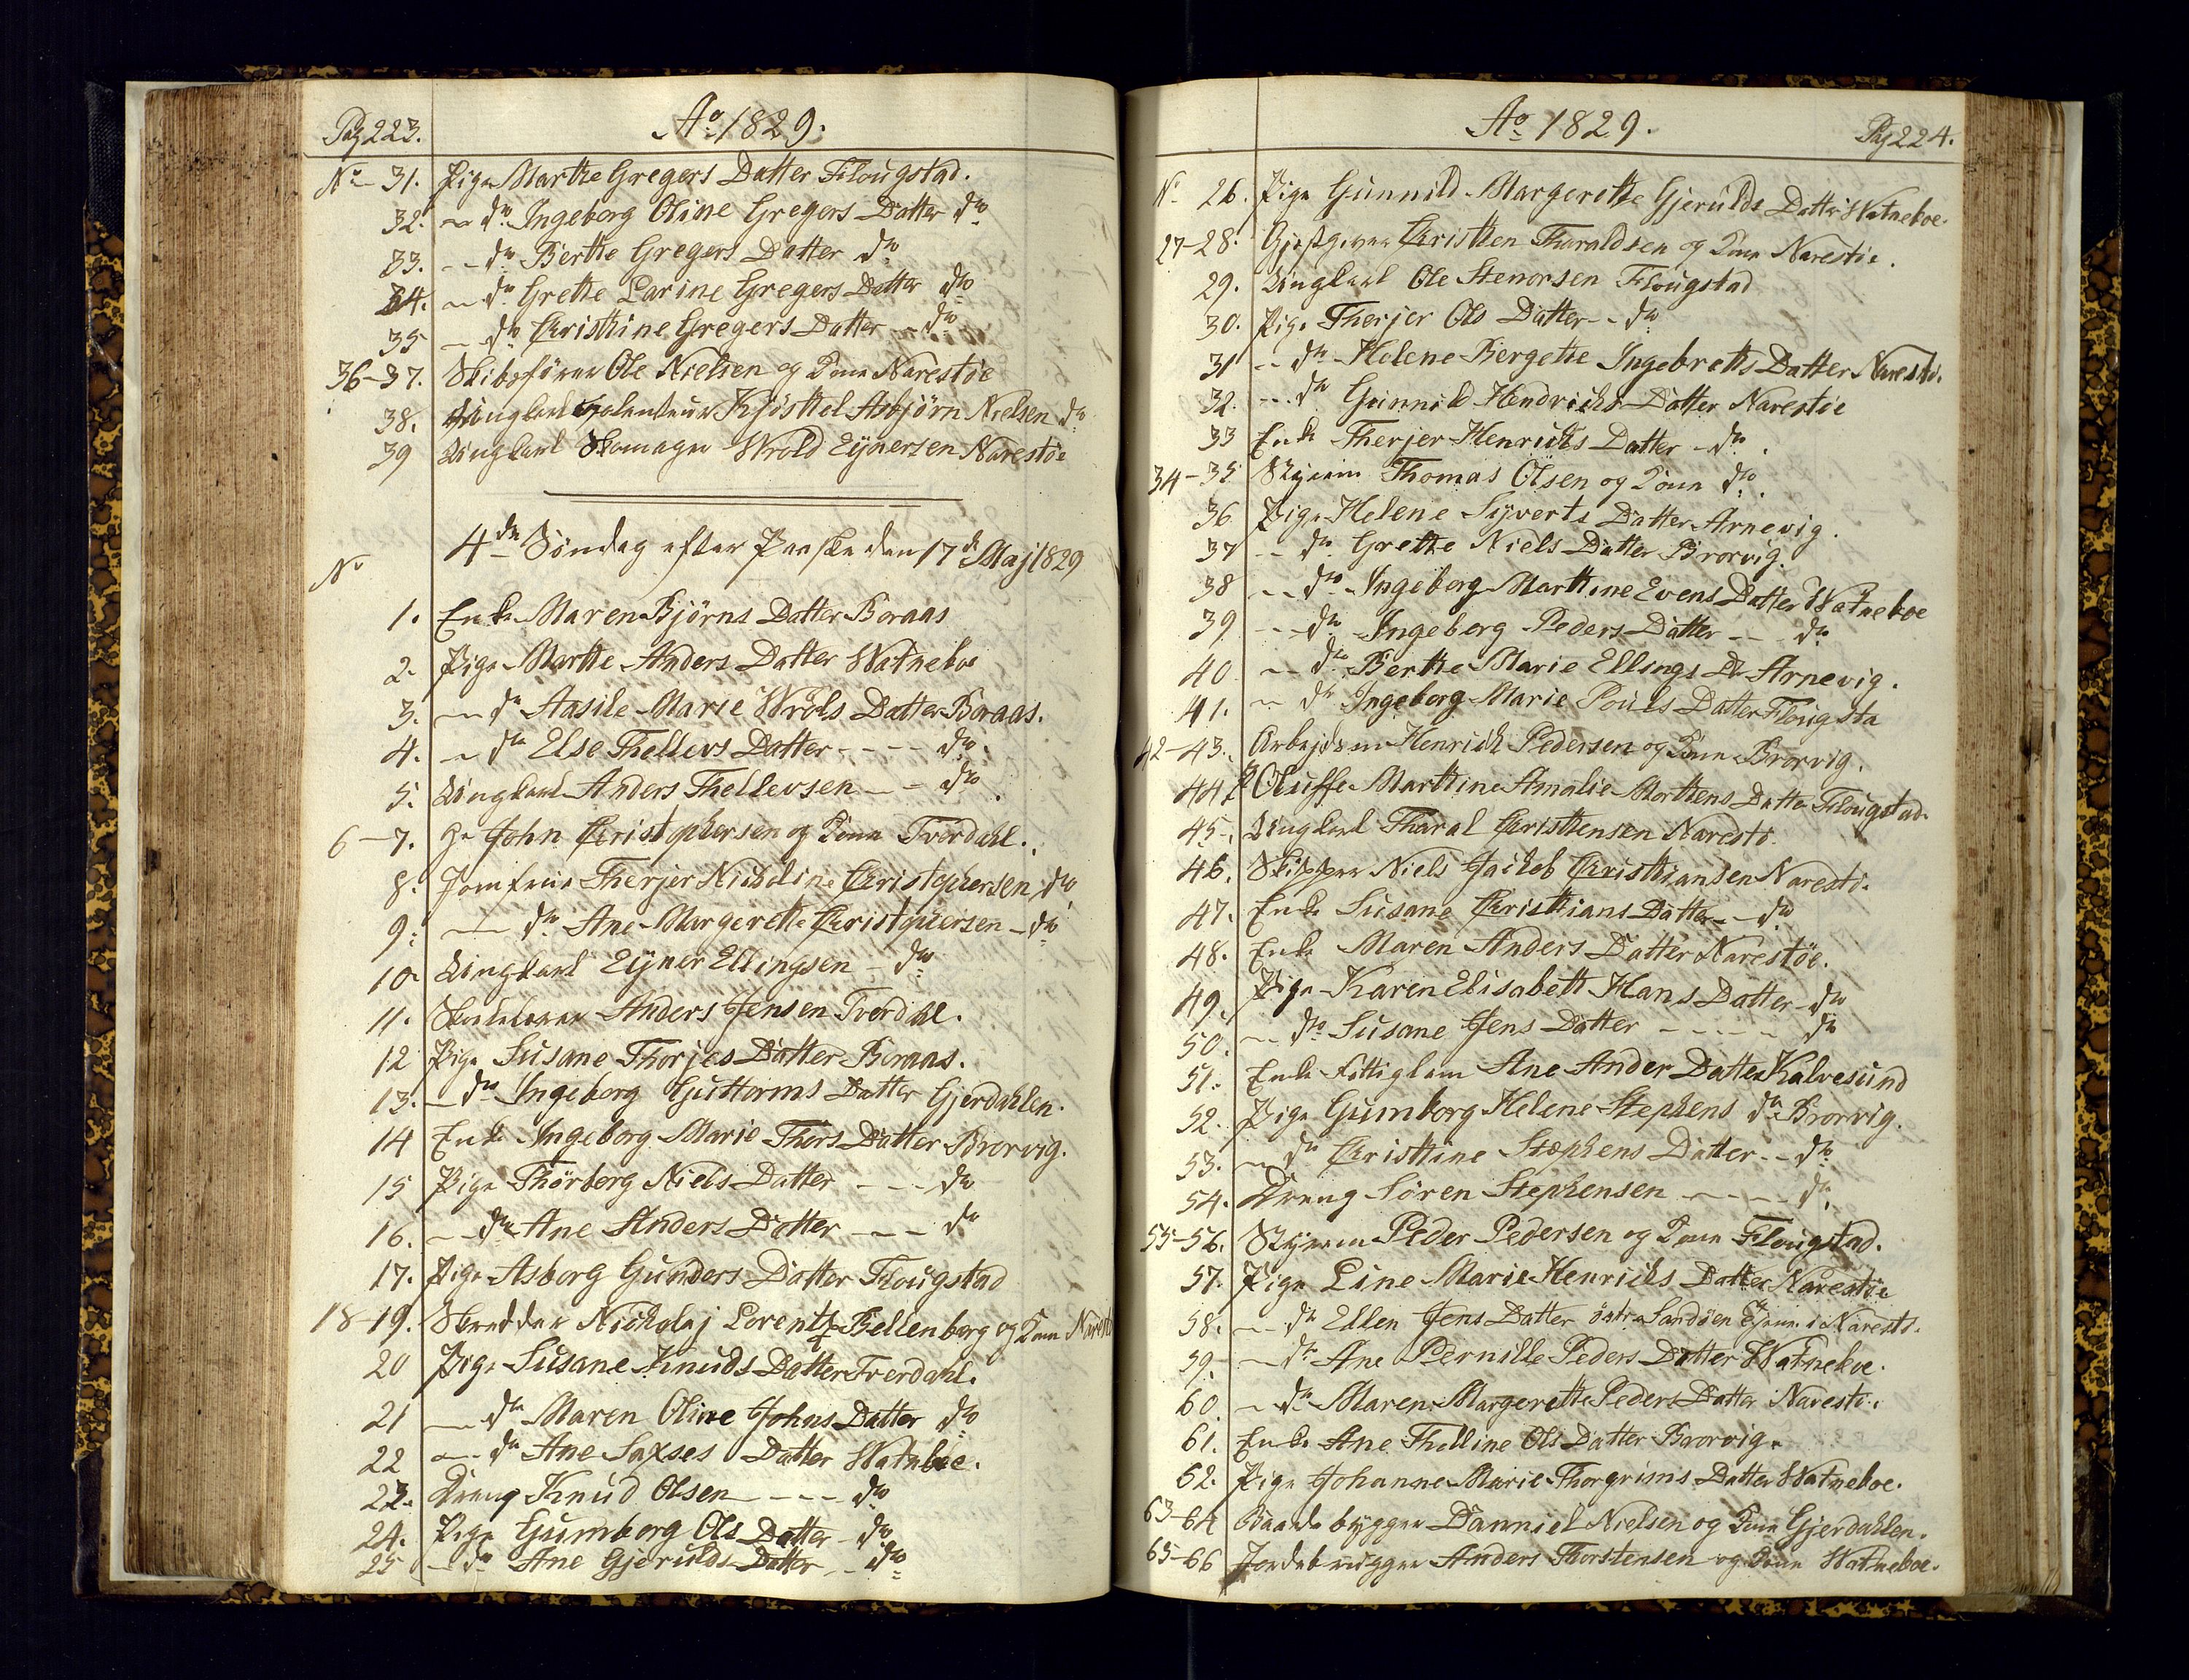 Pag 223.
Ao 1829.
No 31. Pige Marthe Gregers Datter Flougstad.
32. — do Ingeborg Oline Gregers Datter do
33. — do Berthe Gregers Datter do
34. — do Grethe Larine Gregers Datter do
35 — do Christhine Gregers Datter — do
36-37. Skibsfører Ole Nielsen og Kone Narestöe
38. Ungkarl Kjösthel Asbjörn Nielsen do
39 Ungkarl Skomager Wrold Eynersen Narestöe
4de Söndag efter Paaske den 17de Maj 1829
No
1. Enke Maren Björns Datter Boraas
2. Pige Marthe Anders Datter Watneboe
3. — do Aasile Marie Wrols Datter Boraas.
4. — do Else Thellevs Datter - - - - do.
5. Ungkarl Anders Thellevsen — - do
6-7. Hr John Christophersen og Kone Tverdahl.
8. Jomfrue Therjer Nicholine Christophersen do
9. — do Ane Margerethe Christophersen - do
10 Ungkarl Eyner Ellingsen - do
11. Skolelærer Anders Jensen Tverdahl.
12 Pige Susane Thorjes Datter Boraas.
13. — do Ingeborg Guttorms Datter Gjerdahlen.
14 Enke Ingeborg Marie Thors Datter Brorvig.
15 Pige Thörborg Niels Datter - - - do
16. — do Ane Anders Datter - - - do
17. Pige Asborg Gunders Datter Flougstad
18-19. Skredder Nickolaj Lorentz Bellenborg og Kone Narest
20 Pige Susane Knuds Datter Tverdahl.
21 — do Maren Oline Johns Datter do
22 — do Ane Saxses Datter Watnboe.
23. Dreng Knud Olsen - - - - do
24. Pige Gumborg Ols Datter - do
25 - do Ane Gjerulds Datter - - do
Ao 1829.
Pag 224.
No 26. Pige Gunnild Margerethe Gjerulds Datter Watneboe.
27-28. Gjestgiver Christhen Tharaldsen og Kone Narestöe.
29. Ungkarl Ole Stenorsen Flougstad
30. Pige Therjer Ols Datter - - do
31 - - do Helene Bergethe Ingebreths Datter Narestö.
32. - - do Gunnild Hendrichs Datter Narestöe
33 Enke Therjer Henrichs Datter - do.
34-35 Styrm Thomas Olsen og Kone do.
36 Pige Helene Syverts Datter Arnevig.
37 - - do Grethe Niels Datter Brorvig.
38 - - do Ingeborg Marthine Evens Datter Watneboe
39 - - do Ingeborg Peders Datter - - do
40 - - do Berthe Marie Ellings Dr Arnevig.
41. - - do Ingeborg Marie Pouls Datter Flougsta
42-43. Arbejdsm Henrich Pedersen og Kone Brorvig.
44. P Oluffe Marthine Amalie Morthens Datter Flougstad.
45. Ungkarl Tharal Christhensen Narestö.
46. Skipper Niels Jackob Christhiansen Narestö.
47. Enke Susane Christhians Datter - - do
48. Enke Maren Anders Datter Narestöe.
49. Pige Karen Elisabeth Hans Datter - do
50. — do Susane Jens Datter - - - - - do
51. Enke Fattiglem Ane Ander Datter Kalvesund
52. Pige Gumborg Helene Stephens do Brorvig.
53. — do Christhine Stephens Datter - - do
54. Dreng Sören Stephensen - - - - do.
55-56. Styrm Peder Pedersen og Kone Flougstad.
57. Pige Line Marie Henrichs Datter Narestöe
58. — do Ellen Jens Datter östre Sandöen tjenn. i Narestö.
59. — do Ane Pernille Peders Datter Watneboe.
60. — do Maren Margerethe Peders Datter Narestö.
61. Enke Ane Thelline Ols Datter Brorvig.
62. Pige Johanne Marie Thorgrims Datter Watneboe.
63-64 Baadebygger Danniel Nielsen og Kone Gjerdahlen.
65-66 Jordebrugger Anders Thorstensen og Kone Watneboe.